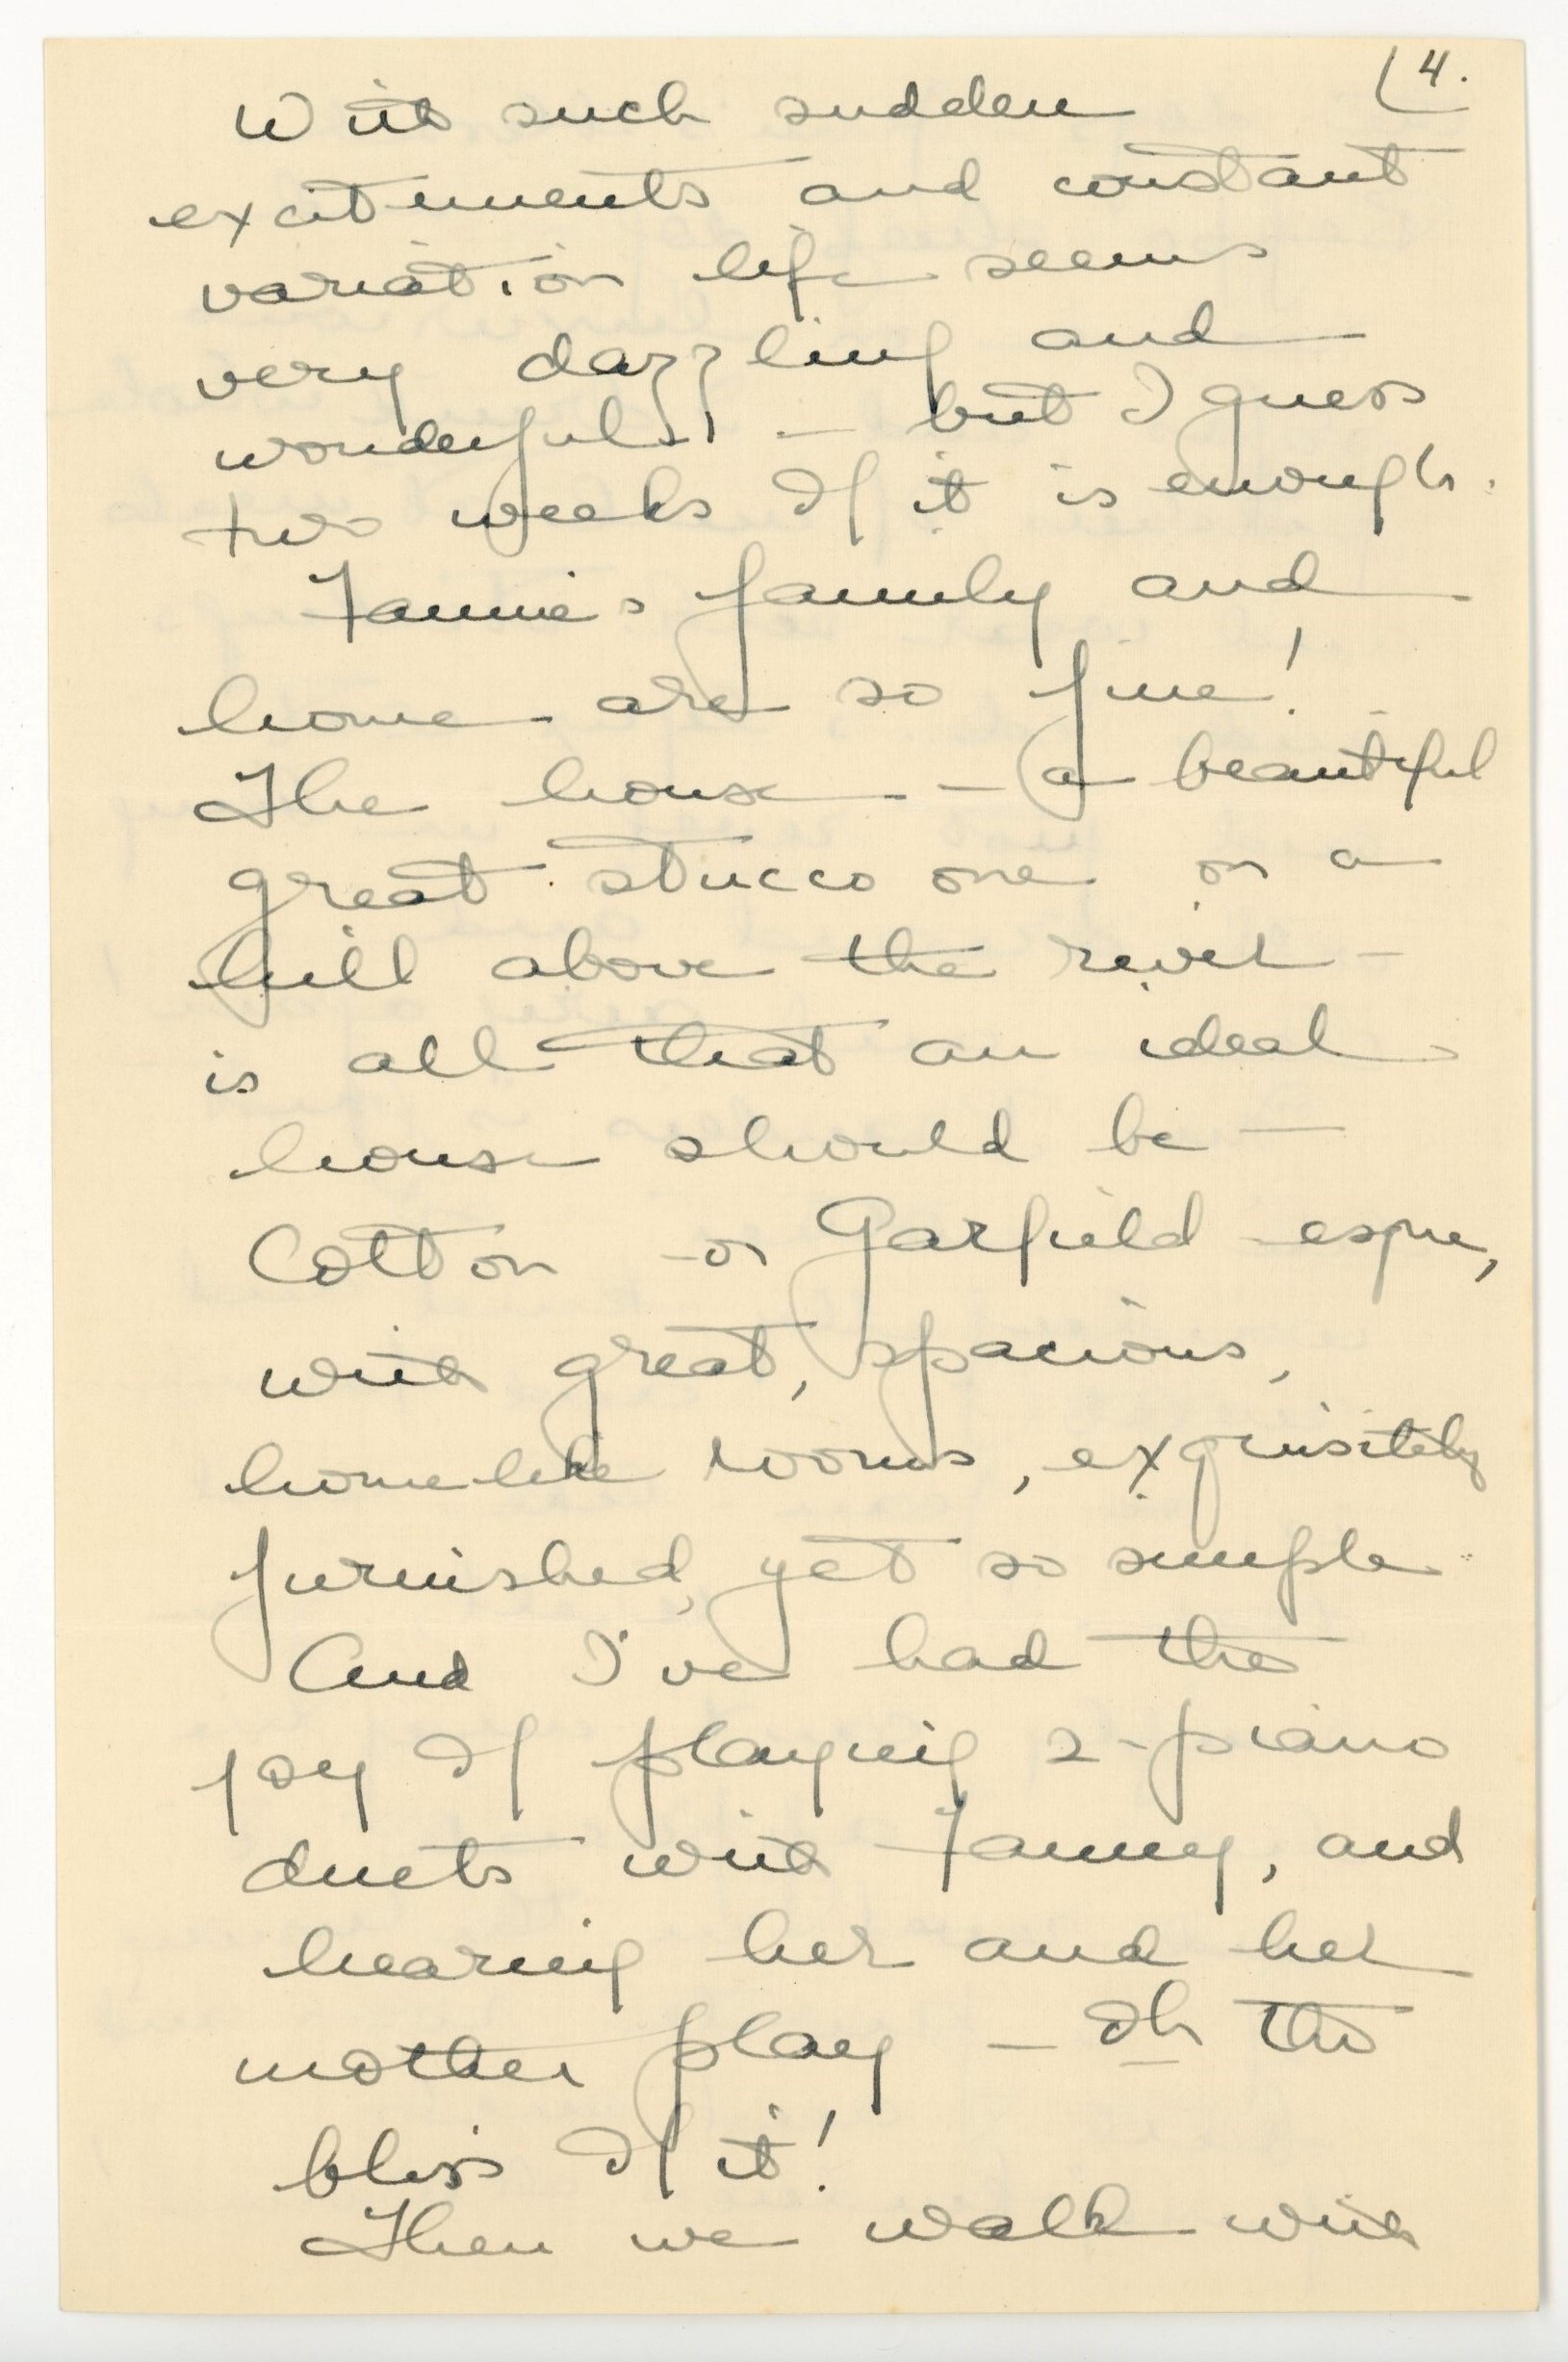 4.
With such sudden
excitements and constant
variation life seems
very dazzling and
wonderful - but I guess
two weeks of it is enough.
Fannie's family and
home are so fine!
The house - a beautiful
great stucco one on a
hill above the river -
is all that an ideal
house should be -
Cotton or Garfield -esque,
with great, spacious,
homelike rooms, exquisitely
furnished, yet so simple
And I've had the
joy of playing 2-piano
duets with Fanny, and
hearing her and her
mother play - Oh the
bliss of it!
Then we walk with